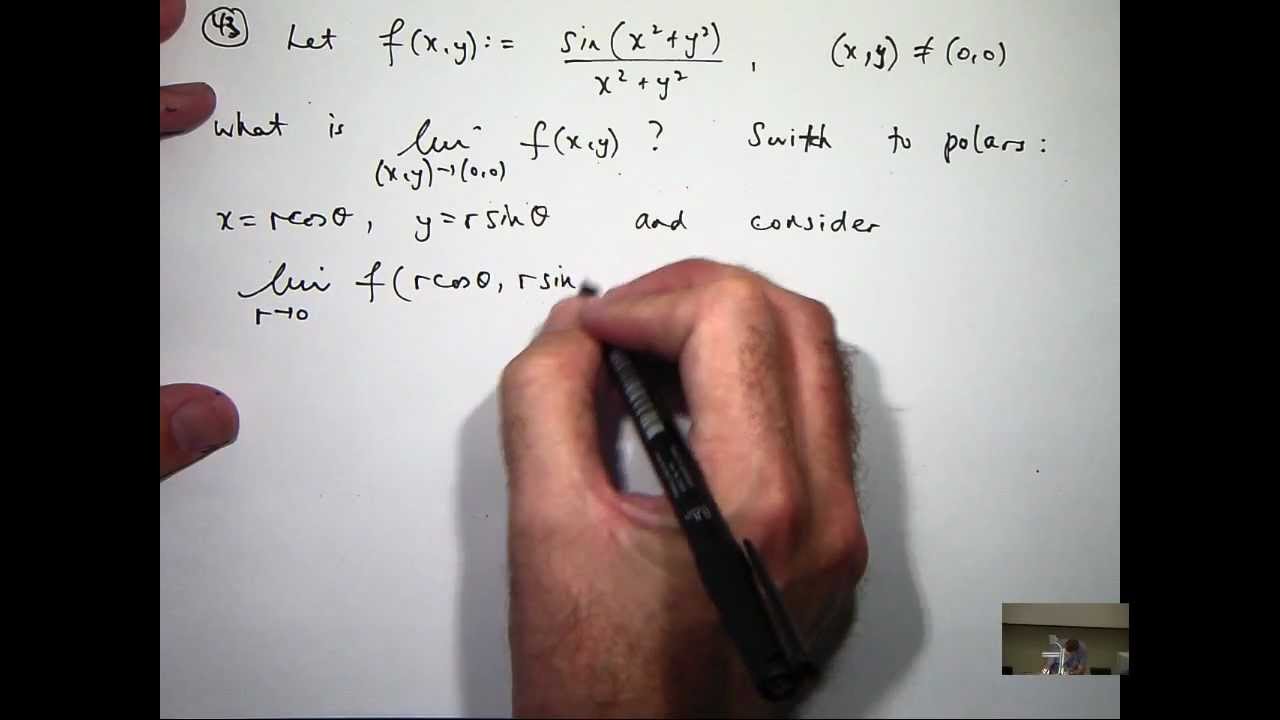 43 Let f(x,y) := sin(x²+y²) / x²+y² , (x,y) ≠ (0,0)
what is lim (x,y)→(0,0) f(x,y) ? Switch to polars:
x = rcosθ, y = r sinθ and consider
lim r→0 f(rcosθ, r sin